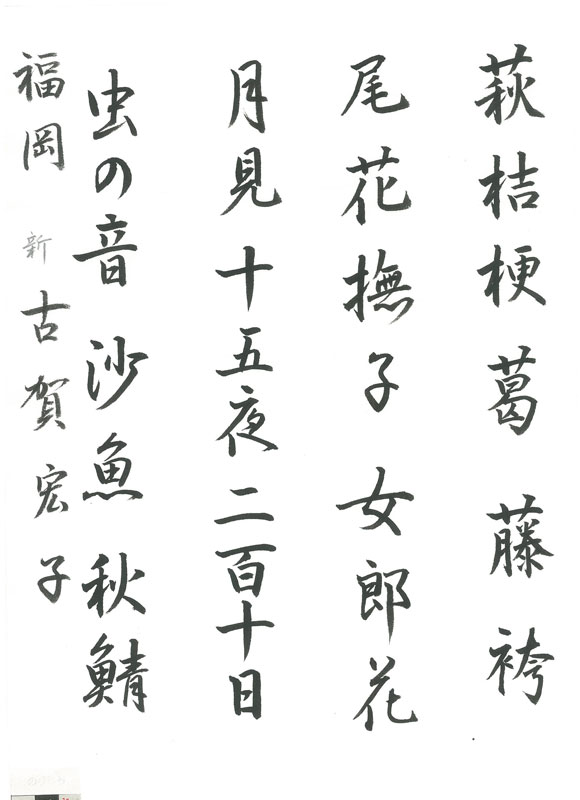 萩桔梗葛 藤袴
尾花撫子 女郎花
月見 十五夜 二百十日
虫の音 沙魚 秋鯖
福岡 新 古賀宏子